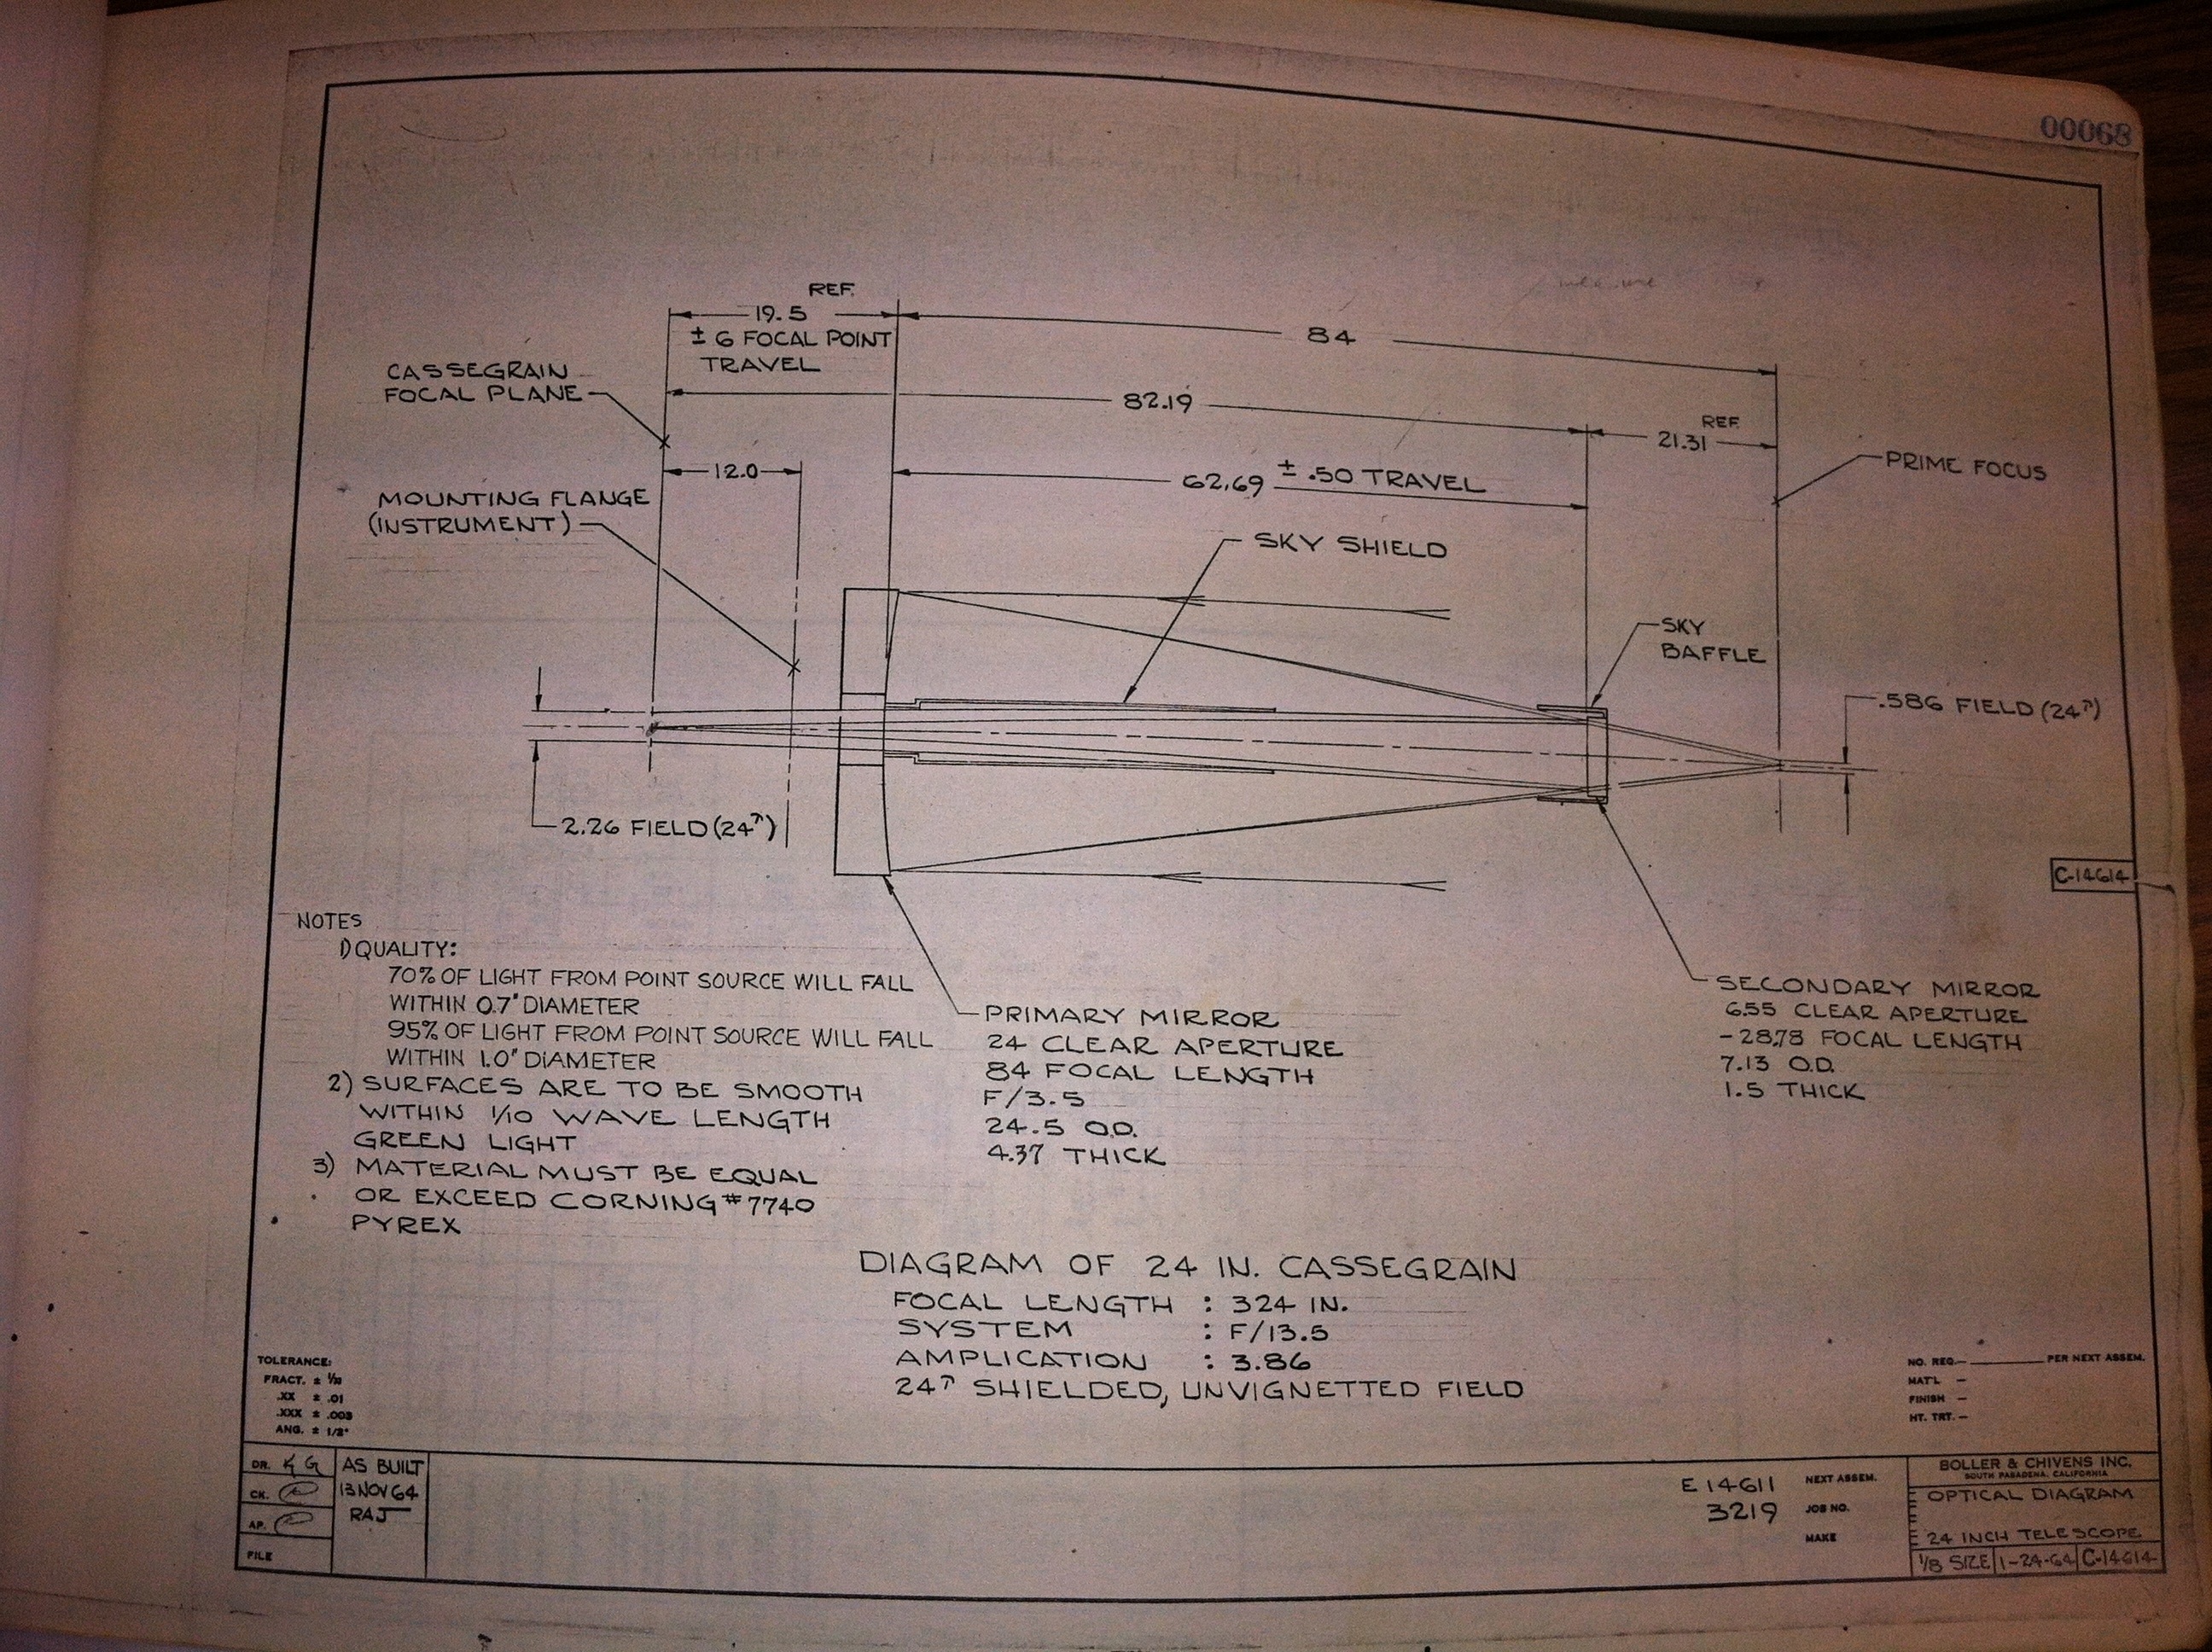 00068
REF.
19.5
± 6 FOCAL POINT
TRAVEL
84
CASSEGRAIN
FOCAL PLANE
82.19
REF.
21.31
12.0
62.69 ± .50 TRAVEL
PRIME FOCUS
MOUNTING FLANGE
(INSTRUMENT)
SKY SHIELD
SKY
BAFFLE
.586 FIELD (24')
2.26 FIELD (24')
C-14614
NOTES
1) QUALITY:
70% OF LIGHT FROM POINT SOURCE WILL FALL
WITHIN 0.7" DIAMETER
95% OF LIGHT FROM POINT SOURCE WILL FALL
WITHIN 1.0" DIAMETER
2) SURFACES ARE TO BE SMOOTH
WITHIN 1/10 WAVE LENGTH
GREEN LIGHT
3) MATERIAL MUST BE EQUAL
OR EXCEED CORNING #7740
PYREX
PRIMARY MIRROR
24 CLEAR APERTURE
84 FOCAL LENGTH
F/3.5
24.5 O.D.
4.37 THICK
SECONDARY MIRROR
6.55 CLEAR APERTURE
-28.78 FOCAL LENGTH
7.13 O.D.
1.5 THICK
DIAGRAM OF 24 IN. CASSEGRAIN
FOCAL LENGTH : 324 IN.
SYSTEM : F/13.5
AMPLICATION : 3.86
24' SHIELDED, UNVIGNETTED FIELD
TOLERANCE:
FRACT. ± 1/32
.XX ± .01
.XXX ± .003
ANG. ± 1/2°
NO. REQ. — PER NEXT ASSEM.
MAT'L —
FINISH —
HT. TRT. —
DR. KG
CK.
AP.
FILE
AS BUILT
13 NOV 64
RAJ
E 14611 NEXT ASSEM.
3219 JOB NO.
MAKE
BOLLER & CHIVENS INC.
SOUTH PASADENA, CALIFORNIA
OPTICAL DIAGRAM
24 INCH TELESCOPE
1/8 SIZE 1-24-64 C-14614